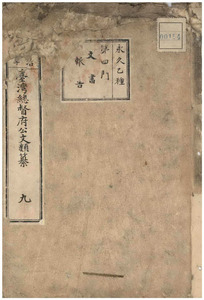 永久乙種
第四門
文書
報告
臺灣總督府公文類纂
九